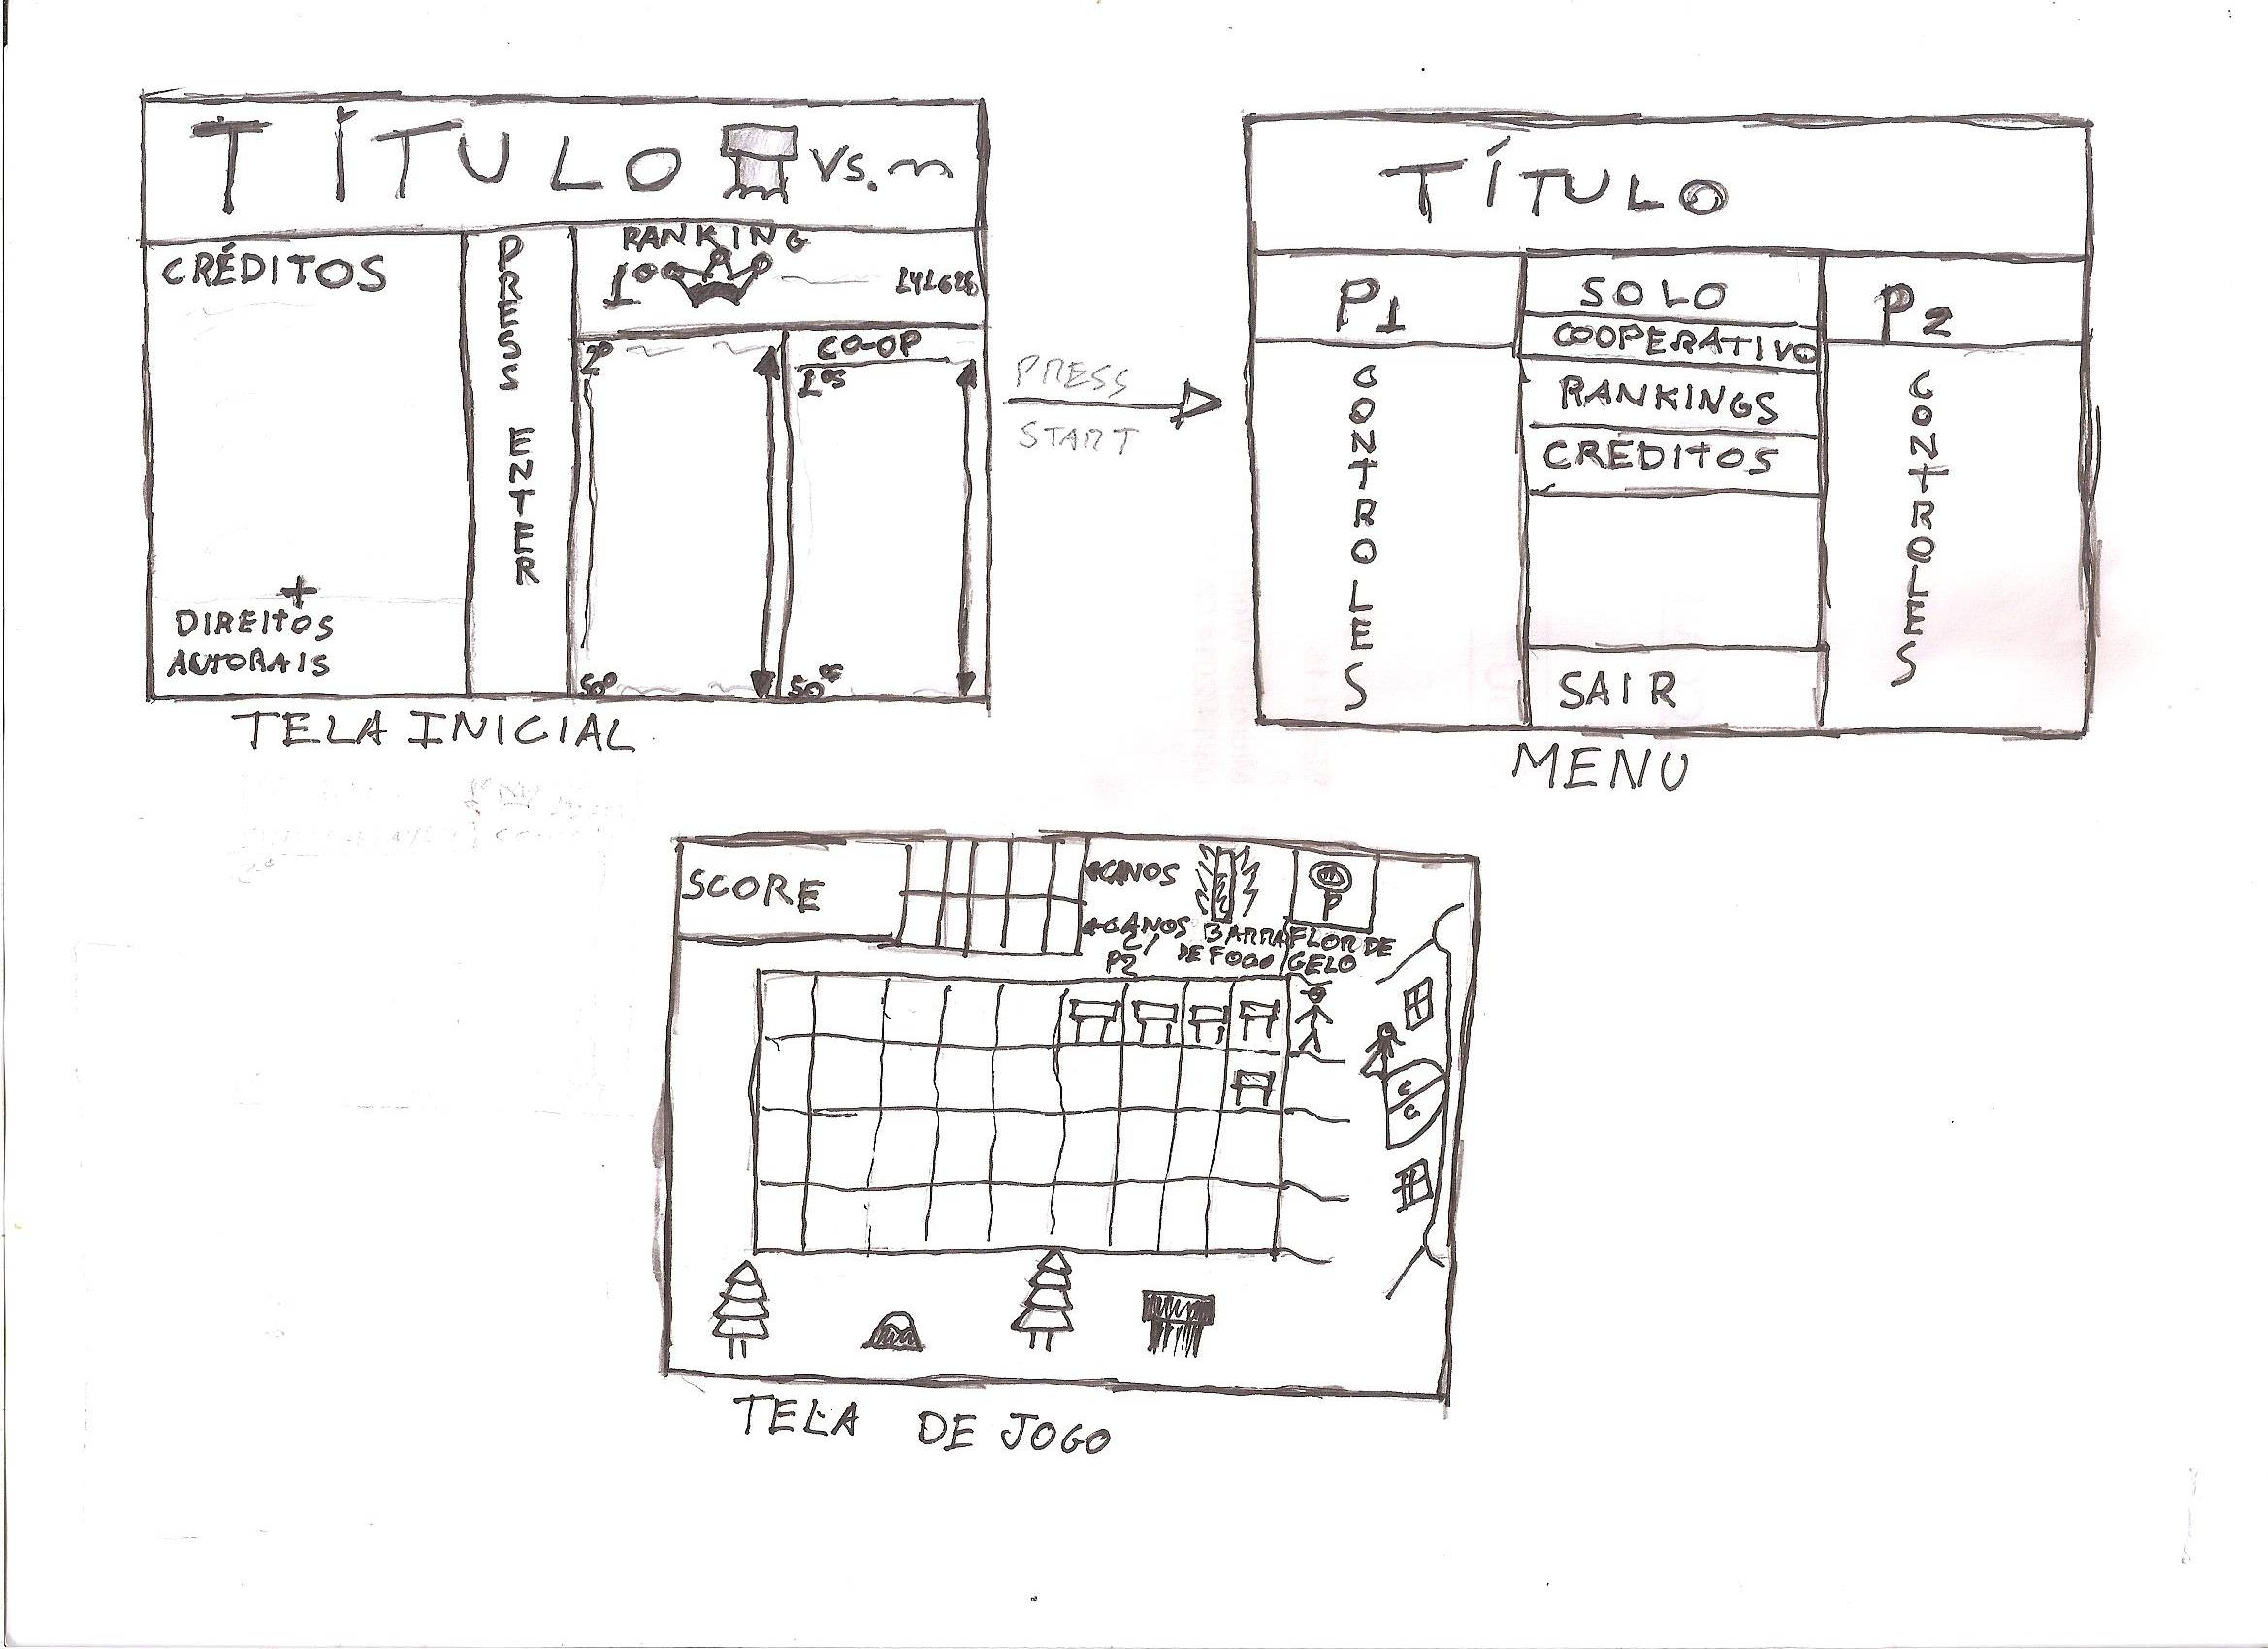 TÍTULO VS.
CRÉDITOS
+
DIREITOS
AUTORAIS
PRESS ENTER
RANKING
1º
2º
50º
CO-OP
1ºs
50ºs
TELA INICIAL
PRESS
START
TÍTULO
P1
CONTROLES
SOLO
COOPERATIVO
RANKINGS
CRÉDITOS
SAIR
P2
CONTROLES
MENU
SCORE
CANOS
CANOS
C/
P2
BARRA
DE FOGO
P
FLOR DE
GELO
C
C
TELA DE JOGO